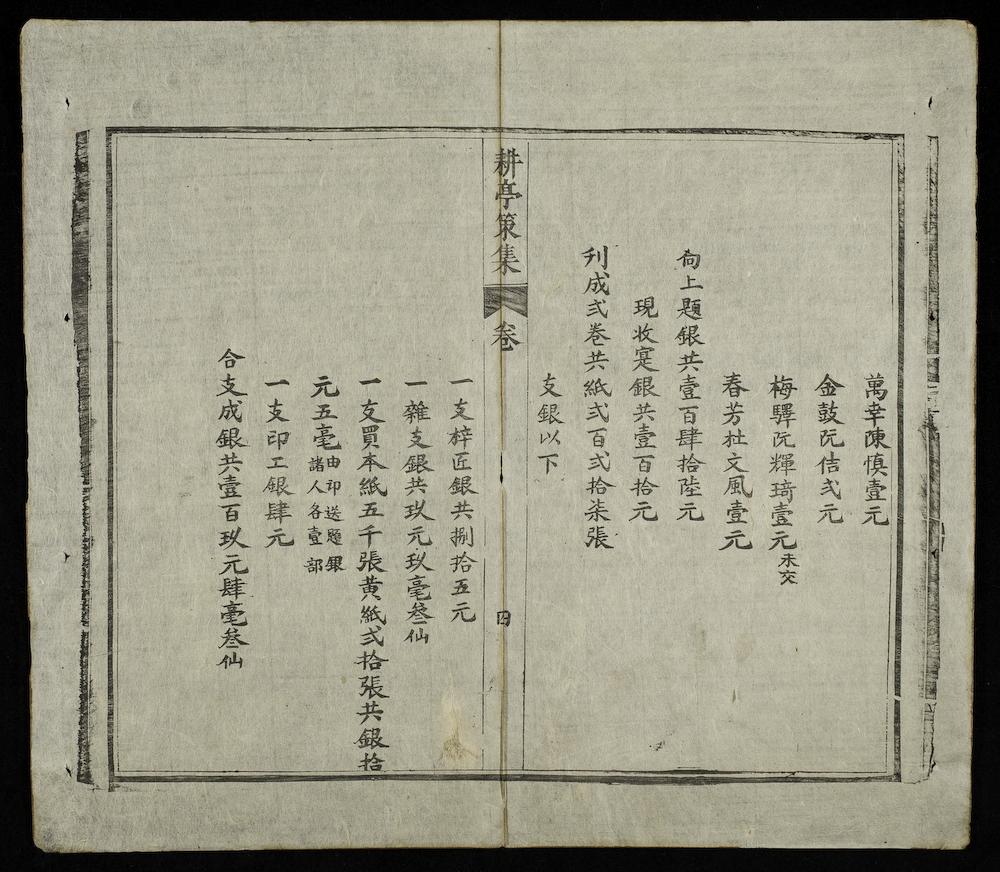 萬幸陳慎壹元
金鼓阮佶弍元
梅驛阮輝琦壹元未交
春芳杜文風壹元
向上題銀共壹百肆拾陸元
現收寔銀共壹百拾元
刋成弍卷共紙弍百弍拾柒張
支銀以下
耕亭策集 卷 四
一支梓匠銀共捌拾五元
一雜支銀共玖元玖毫叄仙
一支買本紙五千張黄紙弍拾張共銀拾
元五毫由印送題銀諸人各壹部
一支印工銀肆元
合支成銀共壹百玖元肆毫叄仙